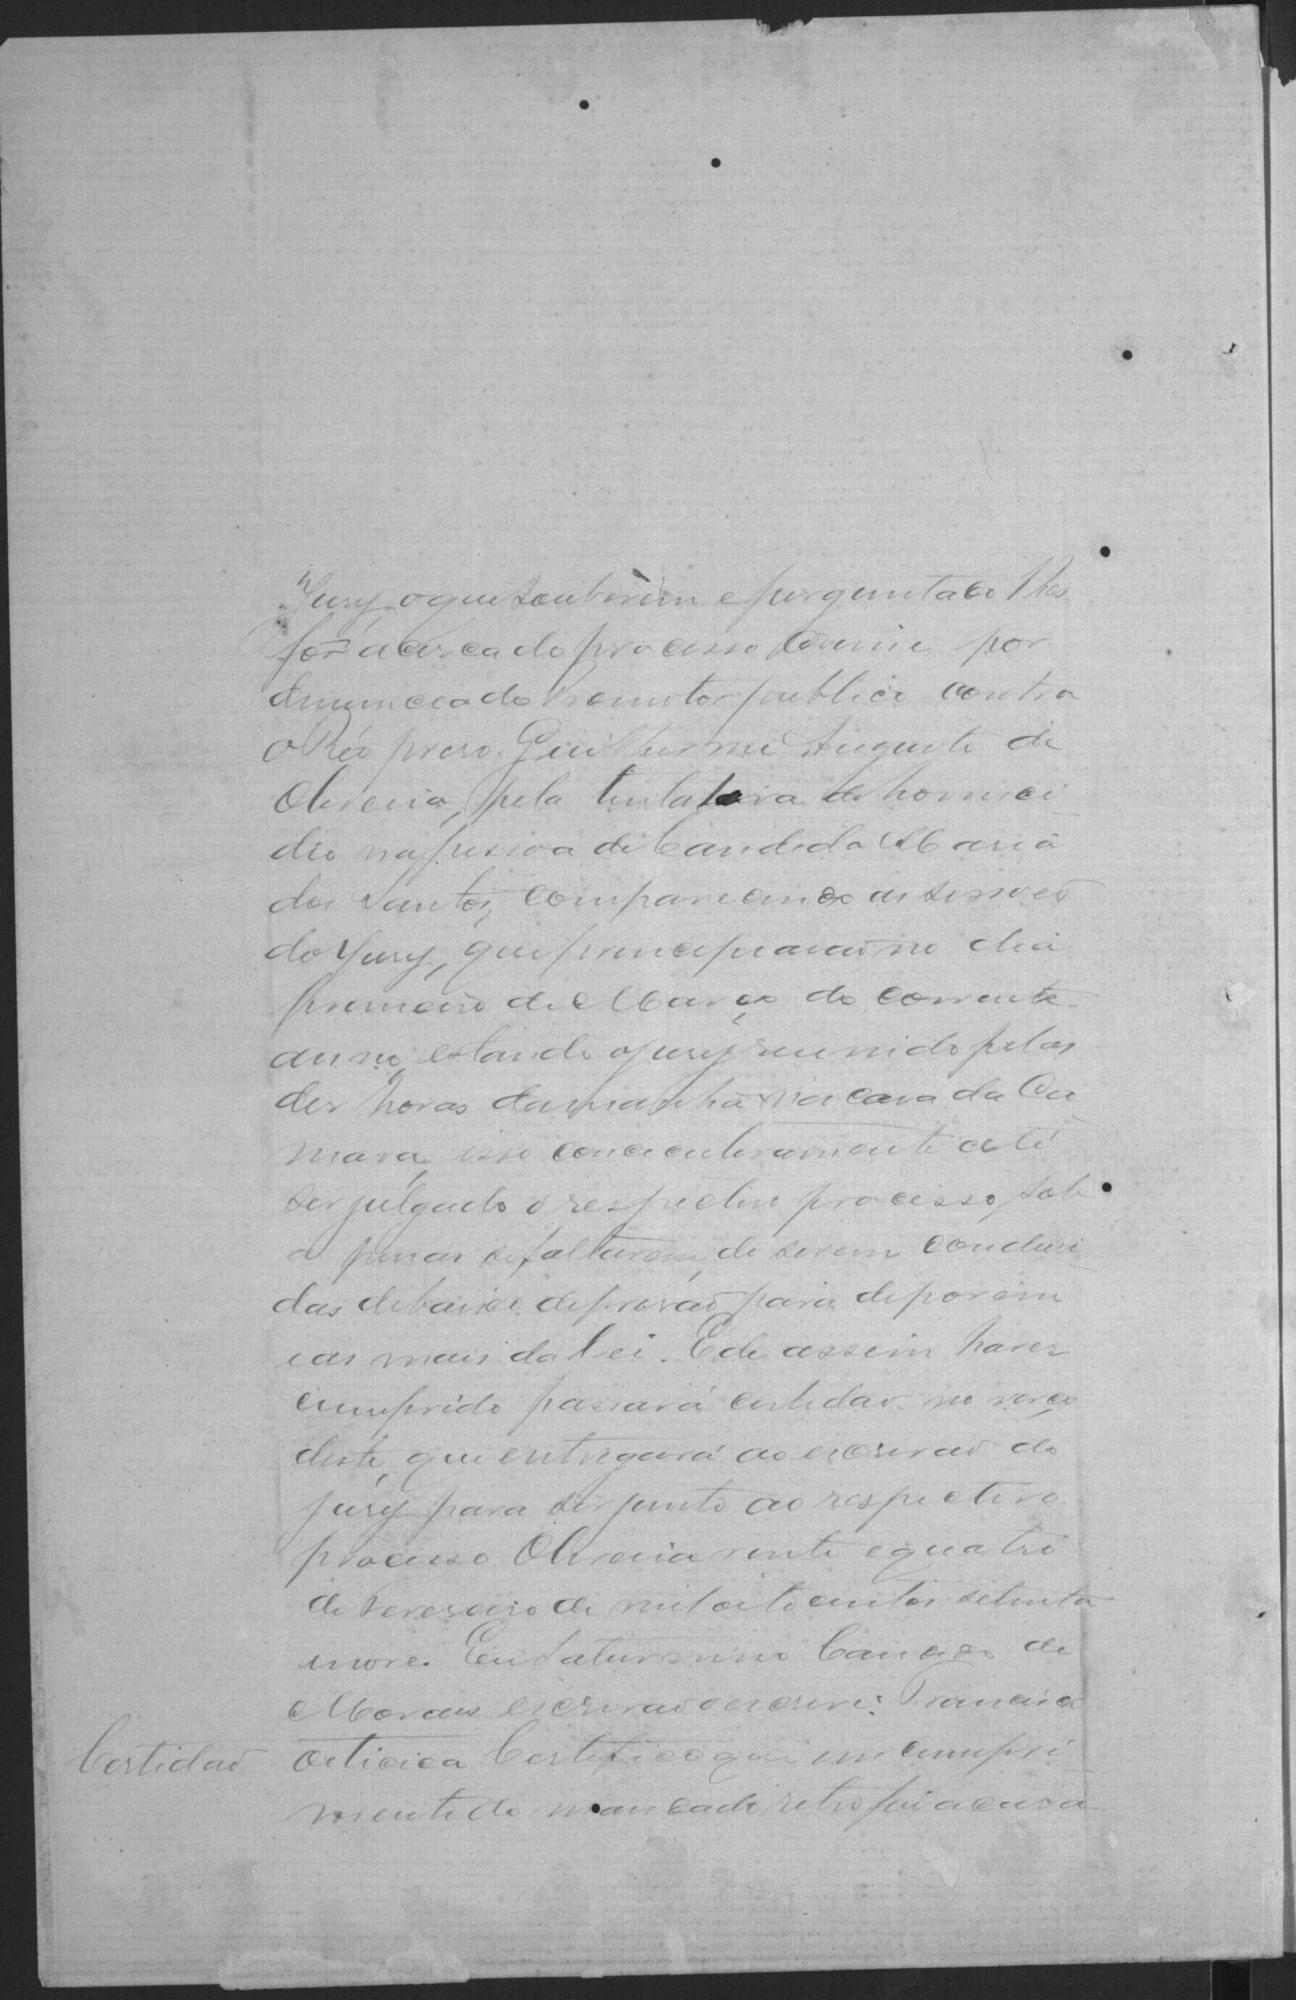 Jury, o que souberem e perguntado lhes
for acerca do processo crime por
denuncia do Promotor publico contra
o Réo preso Guilherme Augusto de
Oliveira, pela tentativa de homici
dio na pessoa de Candida Maria
dos Santos, comparecendo as sessoes
do Jury, que principiarão no dia
primeiro de Março do corrente
anno, estando o jury reunido pelas
des horas da manhã na casa da Ca
mara, isso
ser julgado o respectivo processo, sob
a penas se faltarem, de serem condusi
das debaixo de prisão para deporem
eas mais da lei. E de assim haver
cumprido passará certidão no verço
deste, que entregará ao escrivão do
jury para ser junto ao respectivo
processo. Oliveira vinte e quatro
de Fevereiro de mil oito centos setenta
enove. Eu Saturnino Cançado de
Moraes escrivão o escrevi: Francisco
Oiticica Certifico que em cumpri
Certidão
mento do mandado retro fui a casa